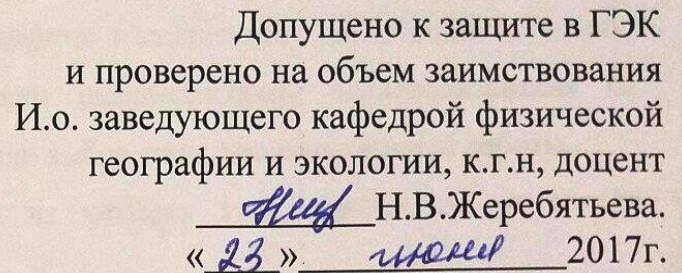 Допущено к защите в ГЭК
и проверено на объем заимствования
И.о. заведующего кафедрой физической
географии и экологии, к.г.н, доцент
Н.В.Жеребятьева.
« 23 » июня 2017г.